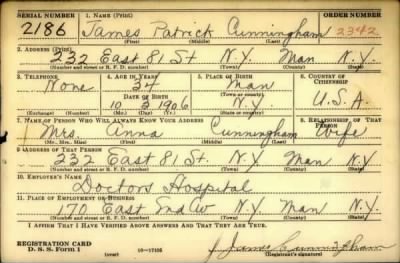 SERIAL NUMBER 1. NAME (Print) ORDER NUMBER
2186 James Patrick Cunningham 2342
(First) (Middle) (Last)
2. ADDRESS (Print)
232 East 81 St. N.Y. Man N.Y.
(Number and street or R. F. D. number) (Town) (County) (State)
3. TELEPHONE 4. AGE IN YEARS 5. PLACE OF BIRTH 6. COUNTRY OF CITIZENSHIP
None 34 Man
DATE OF BIRTH (Town or county)
10 3 1906 N.Y. U.S.A.
(Exchange) (Number) (Mo.) (Day) (Yr.) (State or country)
7. NAME OF PERSON WHO WILL ALWAYS KNOW YOUR ADDRESS 8. RELATIONSHIP OF THAT PERSON
Mrs. Anna Cunningham Wife
(Mr., Mrs., Miss) (First) (Middle) (Last)
9. ADDRESS OF THAT PERSON
232 East 81 St. N.Y. Man N.Y.
(Number and street or R. F. D. number) (Town) (County) (State)
10. EMPLOYER'S NAME
Doctors Hospital
11. PLACE OF EMPLOYMENT OR BUSINESS
170 East End Av N.Y. Man N.Y.
(Number and street or R. F. D. number) (Town) (County) (State)
I AFFIRM THAT I HAVE VERIFIED ABOVE ANSWERS AND THAT THEY ARE TRUE.
REGISTRATION CARD
D. S. S. Form 1 (over) James Cunningham
(Registrant's signature)